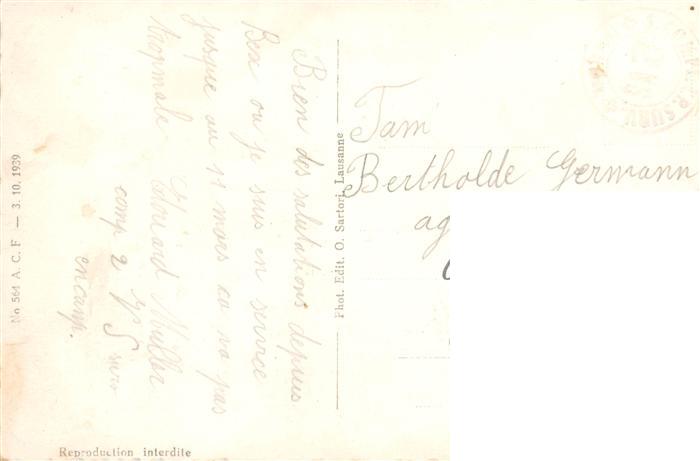 Bien des salutations depuis
Bex ou je suis en service
jusque au 11 mars ca va pas
trop male Edouard Muller
comp 2 S surv
en camp.
Phot. Edit. O. Sartori, Lausanne
Fam
Bertholde Germann
ag
No 564 A. C. F — 3. 10. 1939
Reproduction interdite